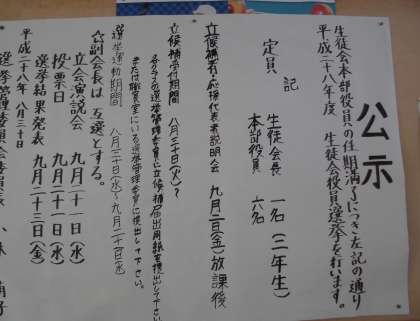 公示
生徒会本部役員の任期満了につき左記の通り
平成二十八年度 生徒会役員選挙を行います。
記
定員 生徒会長 一名(二年生)
本部役員 六名
立候補者・応援代表者説明会 九月二日(金)放課後
立候補受付期間 八月三十日(火)〜
各クラスの選挙管理委員に立候補届出用紙を提出して下さい。
または職員室にいる選挙管理委員に提出して下さい。
選挙運動期間 八月三十一日(水)〜九月二十日(水)
☆副会長は互選とする。
立会演説会 九月二十一日(水)
投票日 九月二十一日(水)
選挙結果発表 九月二十三日(金)
平成二十八年 八月三十日
選挙管理委員会委員長